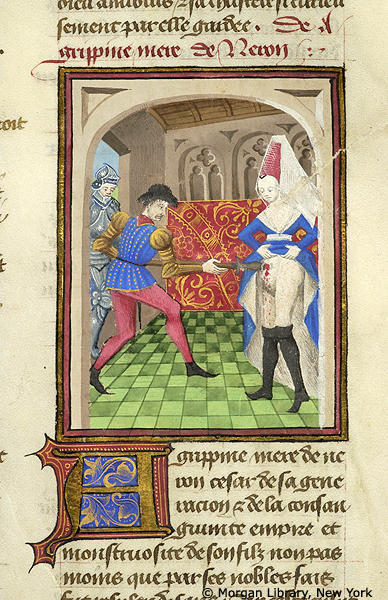 sement par elle gardee. De A
grippine mere de Neron
Agrippine mere de ne
ron cesar de sa gene
racion & de la consan
guinite empire et
monstruosite de son filz non pas
moins que par ses nobles fais
© Morgan Library, New York